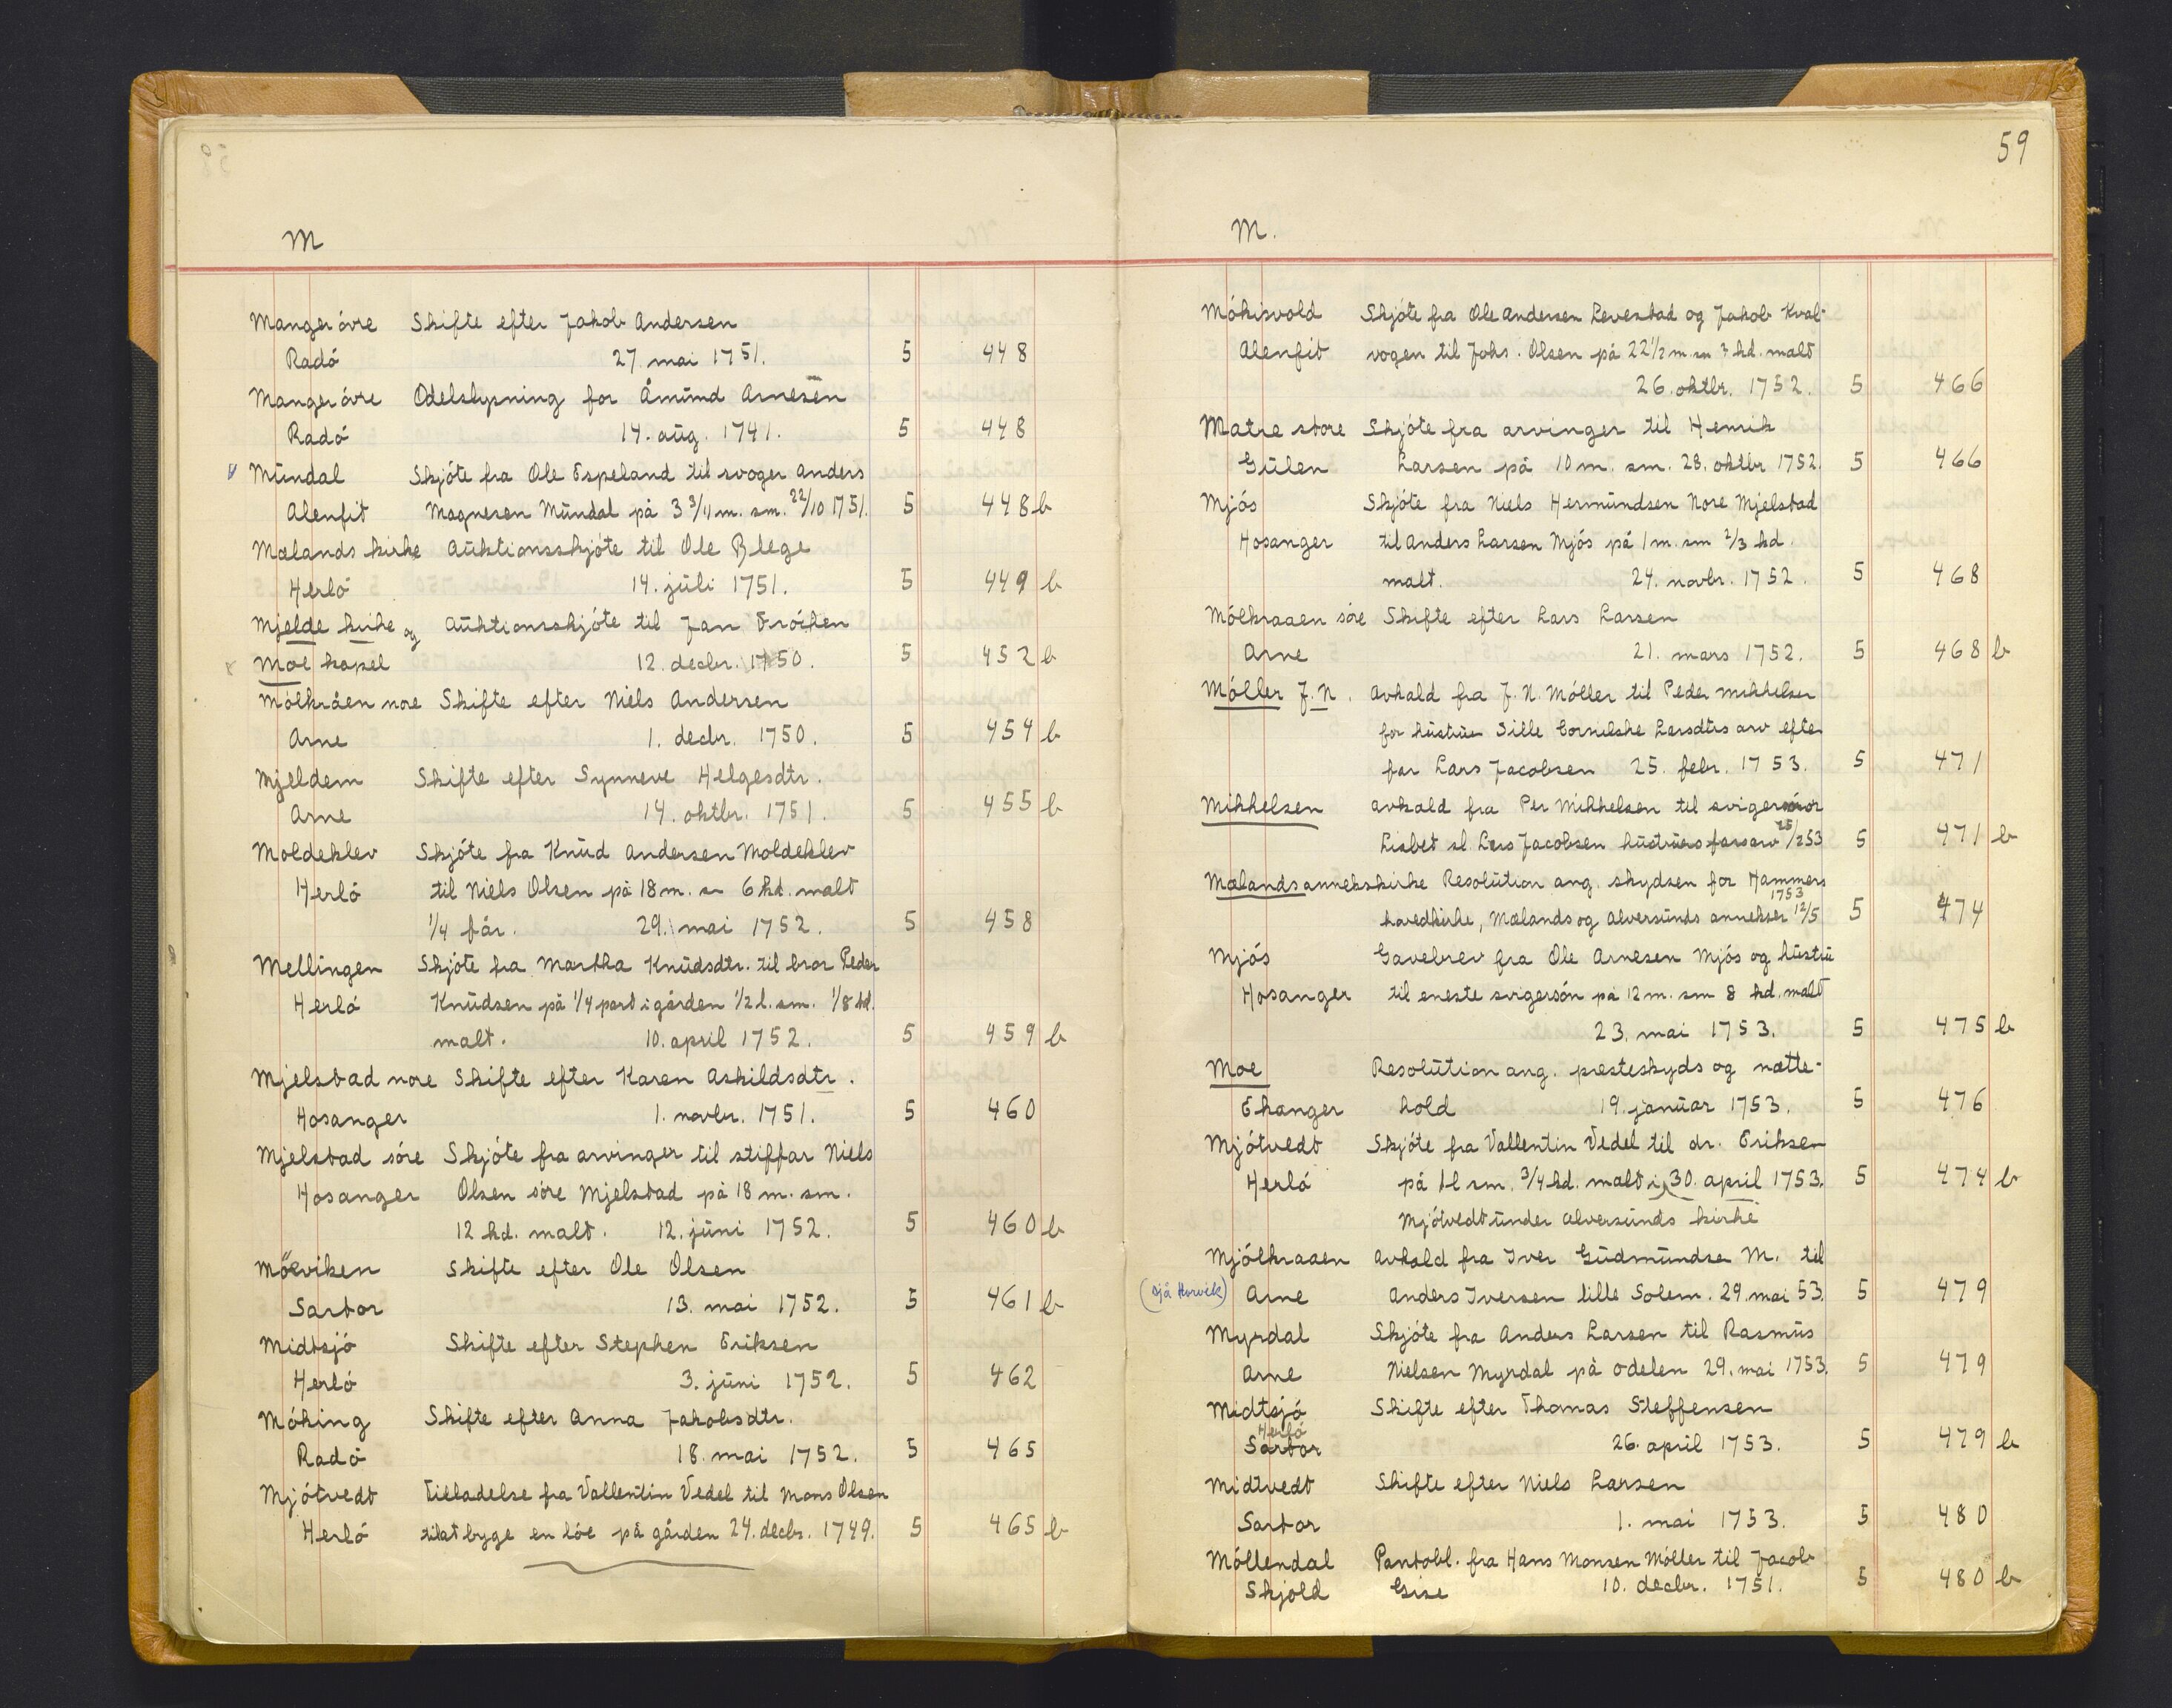 M
Manger óvre Skifte efter Jakob Andersen
Radó 27. mai 1751. 5 448
Manger óvre Odelslysning for Åmund Arnesen
Radó 14. aug. 1741. 5 448
Mundal Skjóte fra Ole Espeland til svoger Anders
Alenfit Magnesen Mundal på 3 3/4 m. sm. 22/10 1751. 5 448 b
Mælands kirke Auktionsskjóte til Ole Blege
Herló 14. juli 1751. 5 449 b
Mjelde kirke og Auktionsskjóte til Jan Fróchen
Moe kapel 12. decbr. 1750. 5 452 b
Mólkråen nore Skifte efter Niels Andersen
Arne 1. decbr. 1750. 5 454 b
Mjeldem Skifte efter Synneve Helgesdtr.
Arne 14. oktbr. 1751. 5 455 b
Moldeklev Skjóte fra Knud Andersen Moldeklev
Herló til Niels Olsen på 18 m. sm 6 kd. malt
1/4 får. 29. mai 1752. 5 458
Mellingen Skjóte fra Martha Knudsdtr. til bror Peder
Herló Knudsen på 1/4 part i gården 1/2 l. sm. 1/8 hd.
malt. 10. april 1752. 5 459 b
Mjelstad nore Skifte efter Karen Askildsdtr.
Hosanger 1. novbr. 1751. 5 460
Mjelstad sóre Skjóte fra arvinger til stiffar Niels
Hosanger Olsen sóre Mjelstad på 18 m. sm.
12 kd. malt. 12. juni 1752. 5 460 b
Móvviken Skifte efter Ole Olsen
Sartor 13. mai 1752. 5 461 b
Midtsjó Skifte efter Stephen Eriksen
Herló 3. juni 1752. 5 462
Móking Skifte efter Anna Jakobsdtr.
Radó 18. mai 1752. 5 465
Mjótvedt Tilladelse fra Vallentin Vedel til Mons Olsen
Herló tilat byge en lóe på gården 24. decbr. 1749. 5 465 b
59
M.
Mókisvold Skjóte fra Ole Andersen Levestad og Jakob Kval-
Alenfit vogen til Johs. Olsen på 22 1/2 m. sm 3 kd. malt
26. oktbr. 1752. 5 466
Matre store Skjóte fra arvinger til Henrik
Gulen Larsen på 10 m. sm. 28. oktbr 1752. 5 466
Mjós Skjóte fra Niels Hermundsen Nore Mjelstad
Hosanger til Anders Larsen Mjós på 1 m. sm 2/3 kd.
malt. 24. novbr. 1752. 5 468
Mólkraaen sóre Skifte efter Lars Larsen
Arne 21. mars 1752. 5 468 b
Móller J. N. Avkald fra J. N. Móller til Peder Mikkelsen
for hustrue Sille Cornelske Larsdtrs arv efter
far Lars Jacobsen 25. febr. 1753. 5 471
Mikkelsen Avkald fra Per Mikkelsen til svigermor
Lisbet sl. Lars Jacobsen hustrues farsarv 25/2 53 5 471 b
Mælands annekskirke Resolution ang. skydsen for Hammers
hovedkirke, Mælands og Alversunds annekser 12/5 1753 5 474
Mjós Gavebrev fra Ole Arnesen Mjós og hustru
Hosanger til eneste svigersón på 12 m. sm 8 kd. malt
23. mai 1753. 5 475 b
Moe Resolution ang. presteskyds og nætte-
Ekanger hold 19. januar 1753. 5 476
Mjótvedt Skjóte fra Vallentin Vedel til dr. Eriksen
Herló på 1 l sm. 3/4 hd. malt i 30. april 1753. 5 474 b
Mjótvedt under Alversunds kirke
Mjólkraaen Avkald fra Iver Gudmundsen M. til
(sjå Horvik) Arne Anders Iversen lille Solem. 29. mai 53. 5 479
Myrdal Skjóte fra Anders Larsen til Rasmus
Arne Nielsen Myrdal på odelen 29. mai 1753. 5 479
Midtsjó Skifte efter Thomas Steffensen
Herló
Sartor 26. april 1753. 5 479 b
Midtvedt Skifte efter Niels Larsen
Sartor 1. mai 1753. 5 480
Móllendal Pantobl. fra Hans Monsen Móller til Jacob
Skjold Gise 10. decbr. 1751. 5 480 b